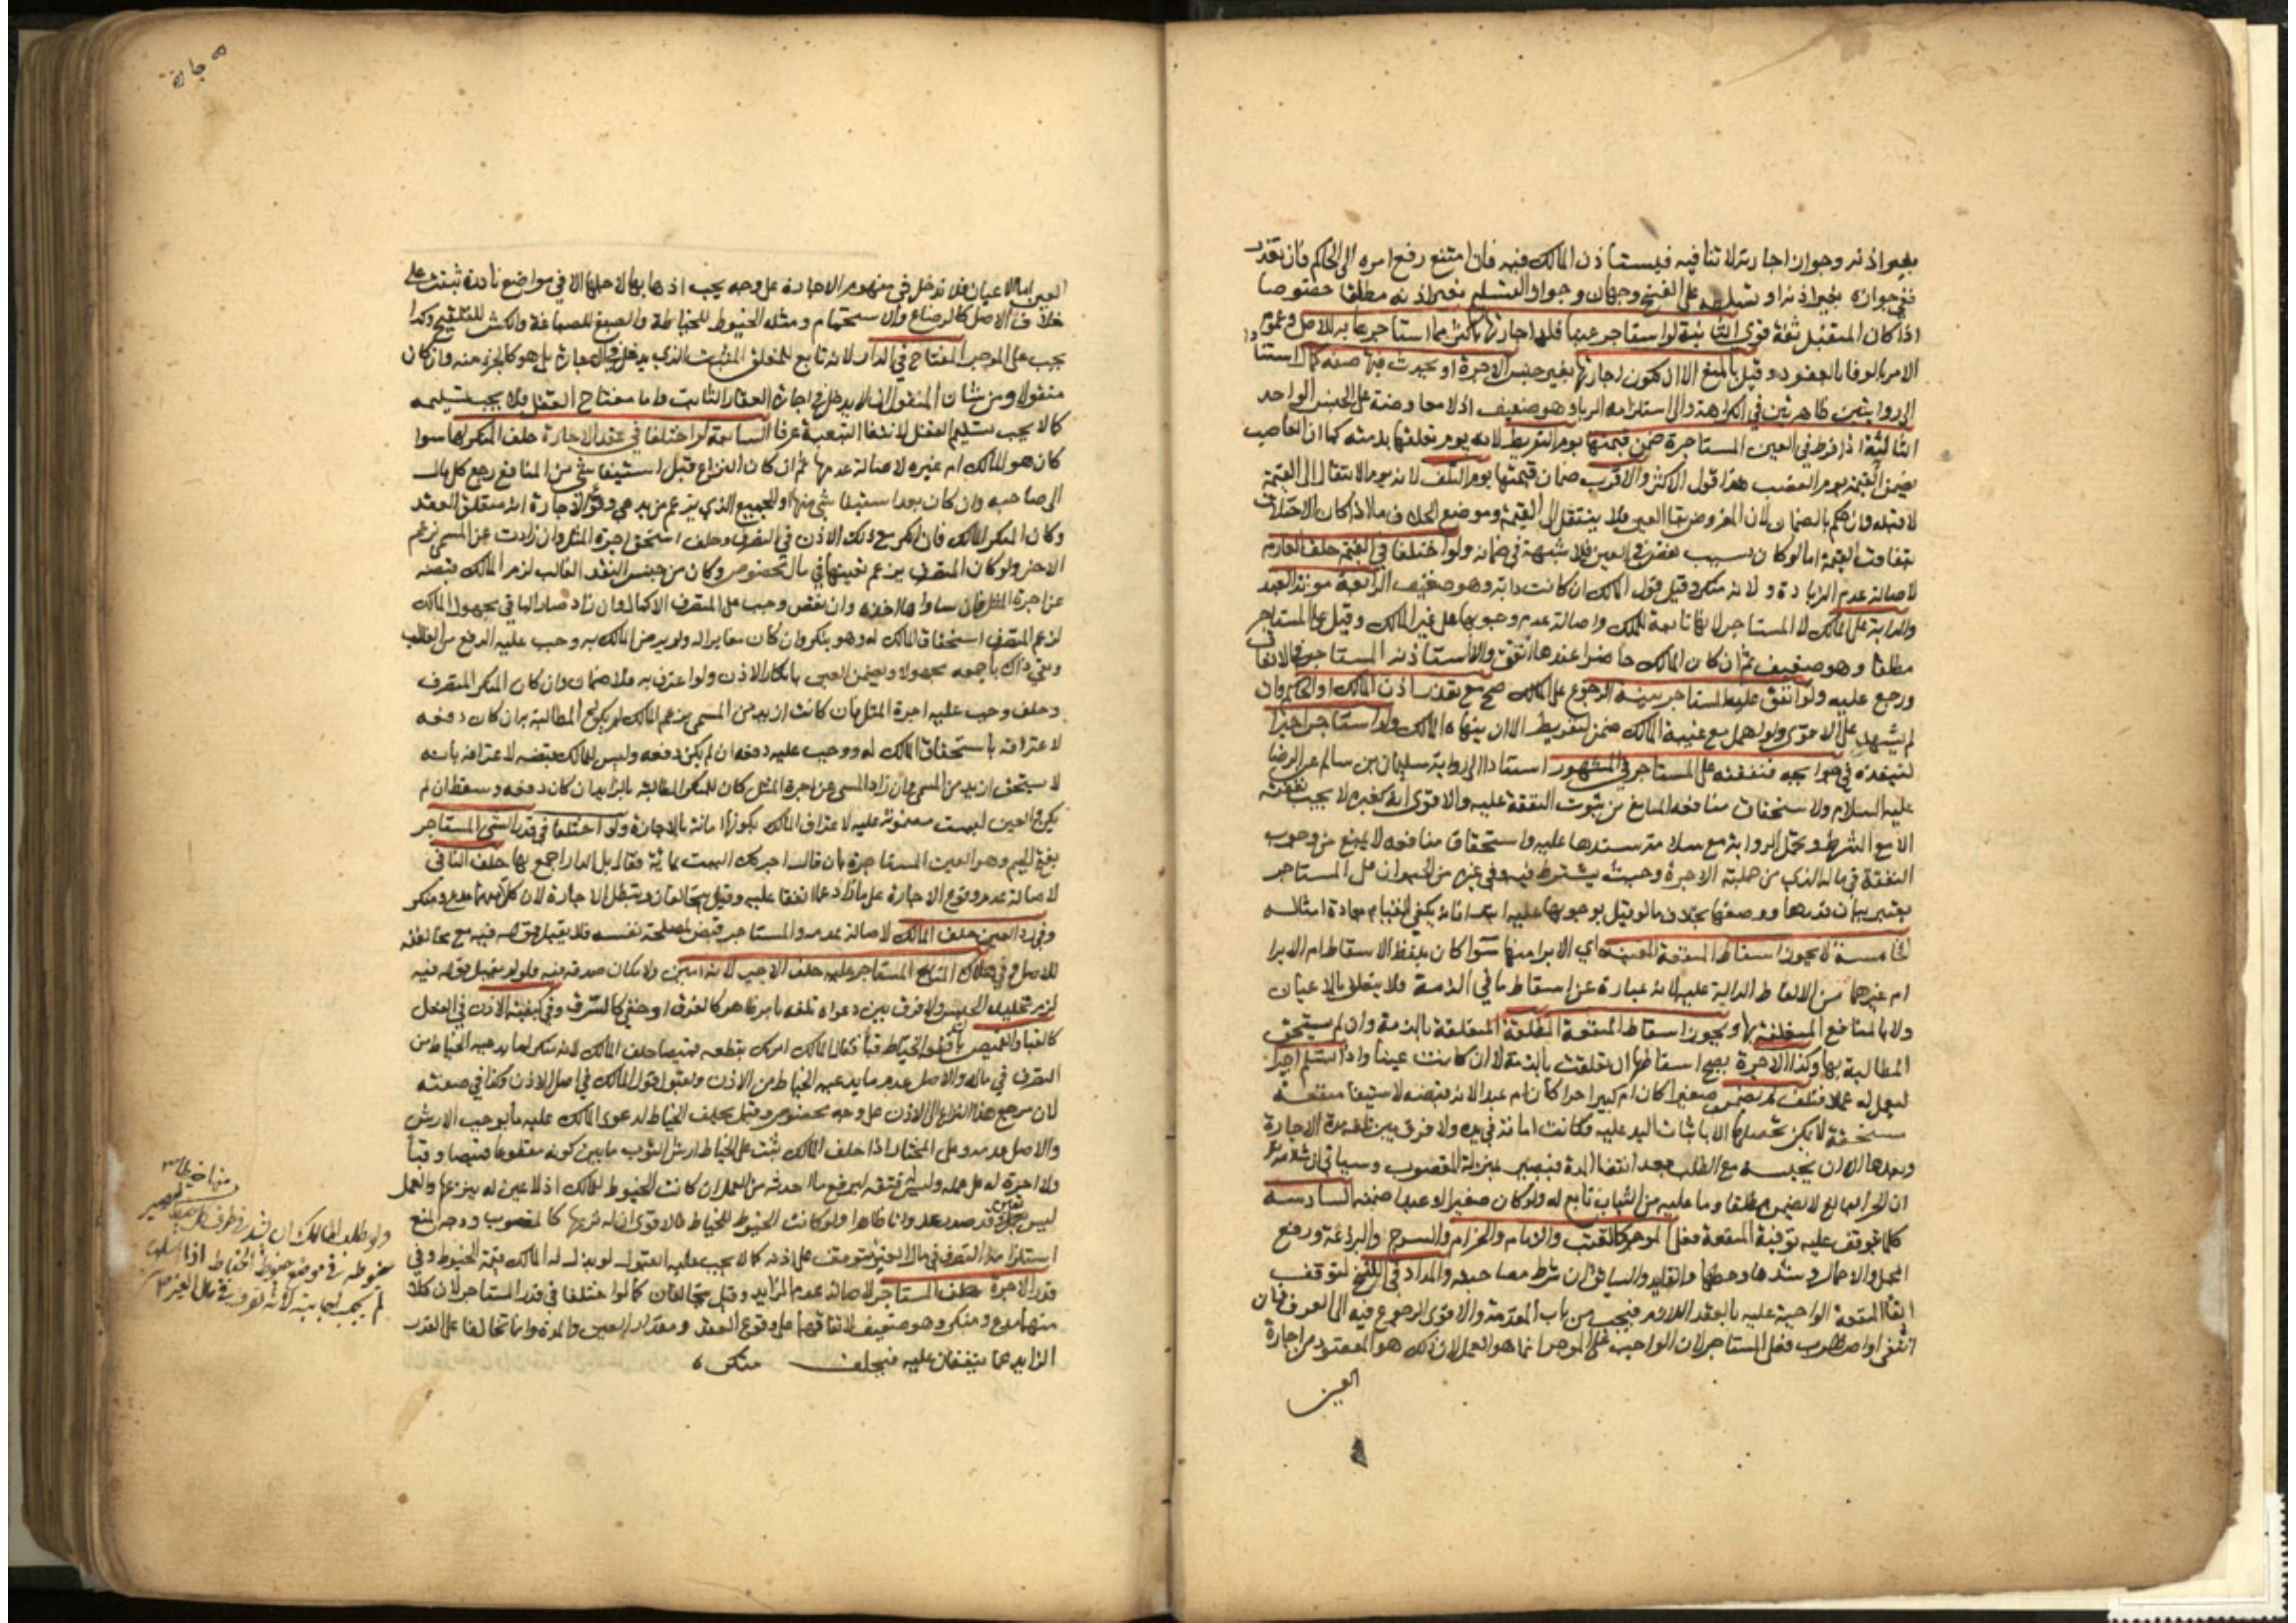 بغير اذنه وجواز اجارته لا تنافيه فيستاذن المالك فيه فان امتنع رفع امره الى الحاكم فان تعذر
ففي جوازه بغير اذنه او تسلطه على الفسخ وجهان وجواز التسليم بغير اذنه مطلقا خصوصا
اذا كان المتقبل ثقة قوي الثانية لو استاجر عينا فله اجارتها باكثر مما استاجرها به للاصل وعموم
الامر بالوفاء بالعقود وقيل بالمنع الا ان تكون اجارتها بغير جنس الاجرة او يحدث فيها صفة كمال استنادا
الى روايتين ظاهرتين في الكراهة والى استلزامه الربا وهو ضعيف اذ لا معاوضة على الجنس الواحد
الثالثة اذا فرط في العين المستاجرة ضمن قيمتها يوم التفريط لانه يوم تعلقها بذمته كما ان الغاصب
يضمن القيمة يوم الغصب هذا قول الاكثر والاقرب ضمان قيمتها يوم التلف لانه يوم الانتقال الى القيمة
لا قبله وان حكم بالضمان لان المفروض بقا العين فلا ينتقل الى القيمة وموضع الخلاف ما اذا كان الاختلاف
بتفاوت القيمة اما لو كان بسبب نقص في العين فلا شبهة في ضمانه ولو اختلفا في القيمة حلف الغارم
لاصالة عدم الزيادة ولانه منكر وقيل قول المالك ان كانت دابة وهو ضعيف الرابعة مونة العبد
والدابة على المالك لا المستاجر لانها تابعة للملك واصالة عدم وجوبها على غير المالك وقيل على المستاجر
مطلقا وهو ضعيف ثم ان كان المالك حاضرا عندها انفق والا استاذنه المستاجر في الانفاق
ورجع عليه ولو انفق عليه المستاجر بنية الرجوع على المالك صح مع تعذر اذن المالك او الحاكم وان
لم يشهد على الاقوى ولو اهمل مع غيبة المالك ضمن لتفريطه الا ان ينهاه المالك ولو استاجر اجيرا
لينفذه في حوايجه فنفقته على المستاجر في المشهور استنادا الى رواية سليمان بن سالم عن الرضا
عليه السلام ولاستحقاق منافعه المانع من ثبوت النفقة عليه والاقوى انه كغيره لا يجب نفقته
الا مع الشرط وتحمل الرواية مع سلامة سندها عليه واستحقاق منافعه لا يمنع من وجوب
النفقة في ماله الذي من جملته الاجرة وحيث يشترط فيه وفي غيره من الحيوان على المستاجر
يعتبر بيان قدرها ووصفها بخلاف ما لو قيل بوجوبها عليه ابتداء فانه يكفي القيام بعادة امثاله
الخامسة لا يجوز اسقاط المنفعة المعينة اي الابراء منها سوا كان بلفظ الاسقاط ام الابرا
ام غيرهما من الالفاظ الدالة عليه لانه عبارة عن اسقاط ما في الذمة فلا يتعلق بالاعيان
ولا بالمنافع المتعلقة بها ويجوز اسقاط المنفعة المطلقة المتعلقة بالذمة وان لم يستحق
المطالبة بها وكذا الاجرة يصح اسقاطها ان تعلقت بالذمة لا ان كانت عينا واذا تسلم اجيرا
ليعمل له عملا فتلف لم يضمن صغيرا كان ام كبيرا حرا كان ام عبدا لانه قبضه لاستيفا منفعة
مستحقة لا يمكن تحصيلها الا باثبات اليد عليه فكانت امانة في يده ولا فرق بين تلفه مدة الاجارة
وبعدها الا ان يحبسه مع الطلب بعد انقضا المدة فيصير بمنزلة المغصوب وسياتي ان شاء الله
ان الحر البالغ لا يضمن مطلقا وما عليه من الثياب تابع له ولو كان صغيرا او عبدا ضمنه السادسة
كلما يتوقف عليه توفية المنفعة فعلى الموجر كالقتب والزمام والحزام والسرج والبرذعة ورفع
المحمل والاحمال وشدها وحطها والقايد والسائق ان شرط مصاحبته والمداد في النسخ لتوقف
ايفا المنفعة الواجبة عليه بالعقد اللازم فيجب من باب المقدمة والاقوى الرجوع فيه الى العرف فان
انتفى او اضطرب فعلى المستاجر لان الواجب على الموجر انما هو العمل لان ذلك هو المقصود من اجارة
العين
اجارة
العين اما الاعيان فلا تدخل في مفهوم الاجارة على وجه يجب اذهابها لاجلها الا في مواضع نادرة ثبتت على
خلاف الاصل كالرضاع والاستحمام ومثله الخيوط للخياطة والصبغ للصباغة والكش للتلقيح وكذا
يجب على الموجر المفتاح في الدار لانه تابع للغلق المثبت الذي يدخل في الاجارة بل هو كالجزء منه وان كان
منقولا ومن شان المنقول ان لا يدخل في اجارة العقار الثابت واما مفتاح القفل فلا يجب تسليمه
كما لا يجب تسليم القفل لانتفا التبعية عرفا السابعة لو اختلفا في عقد الاجارة حلف المنكر لها سوا
كان هو المالك ام غيره لاصالة عدمها ثم ان كان النزاع قبل استيفا شي من المنافع رجع كل مال
الى صاحبه وان كان بعد استيفا شي منها او الجميع الذي يزعم من يدعي وقوع الاجارة انه متعلق العقد
وكان المنكر المالك فان انكر مع ذلك الاذن في التصرف وحلف استحق اجرة المثل وان زادت عن المسمى بزعم
الاخر ولو كان المتصرف يزعم تعينها في مال مخصوص وكان من جنس النقد الغالب لزم المالك قبضه
عن اجرة المثل فان ساواها اخذه وان نقص وجب على المتصرف الاكمال وان زاد صار الباقي مجهول المالك
لزعم المتصرف استحقاق المالك له وهو ينكر وان كان مغايرا له ولم يرض المالك به وجب عليه الدفع من الغالب
وبقي ذاك باجمعه مجهولا ويضمن العين بانكار الاذن ولو اعترف به فلا ضمان وان كان المنكر المتصرف
وحلف وجب عليه اجرة المثل فان كانت ازيد من المسمى بزعم المالك لم يكن له المطالبة به ان كان دفعه
لاعترافه باستحقاق المالك له ووجب عليه دفعه ان لم يكن دفعه وليس للمالك قبضه لاعترافه بانه
لا يستحق ازيد من المسمى وان زاد المسمى عن اجرة المثل كان للمنكر المطالبة بالزايد ان كان دفعه وسقط ان لم
يكن والعين ليست مضمونة عليه لاعتراف المالك بكونها امانة بالاجارة ولو اختلفا في قدر الشي المستاجر
بفتح الجيم وهو العين المستاجرة بان قال اجرتك البيت بمائة فقال بل الدار اجمع بها حلف النافي
لاصالة عدم وقوع الاجارة على ما زاد عما اتفقا عليه وقيل يتحالفان وتبطل الاجارة لان كلا منهما مدع ومنكر
وفي رد العين حلف المالك لاصالة عدمه والمستاجر قبض لمصلحة نفسه فلا يقبل قوله فيه مع مخالفته
للاصل وفي هلاك المتاع المستاجر عليه حلف الاجير لانه امين ولامكان صدقه فيه فلو لم يقبل قوله فيه
لزم تخليده الحبس ولا فرق بين دعواه تلفه بامر ظاهر كالغرق او خفي كالسرق وفي كيفية الاذن في الفعل
كالقبا والقميص بان قطعه الخياط قبا فقال المالك امرتك بقطعه قميصا حلف المالك لانه منكر لما يدعيه الخياط من
التصرف في ماله والاصل عدم ما يدعيه الخياط من الاذن ولقبول قول المالك في اصل الاذن وكذا في صفته
لان مرجع هذا النزاع الى الاذن على وجه مخصوص وقيل يحلف الخياط لدعوى المالك عليه ما يوجب الارش
والاصل عدمه وعلى المختار اذا حلف المالك ثبت على الخياط ارش الثوب ما بين كونه مقطوعا قميصا وقبا
ولا اجرة له على عمله وليس له فتقه ليرفع ما احدثه من العمل ان كانت الخيوط للمالك اذ لا عين له ينزعها والعمل
ليس بعين وقد صدر عدوانا ظاهرا ولو كانت الخيوط للخياط فالاقوى ان له نزعها كالمغصوب ووجه المنع
استلزامه التصرف في مال الغير فيتوقف على اذنه كما لا يجب عليه القبول لو بذل له المالك قيمة الخيوط وفي
قدر الاجرة حلف المستاجر لاصالة عدم الزايد وقيل يتحالفان كما لو اختلفا في قدر المستاجر لان كلا
منهما مدع ومنكر وهو ضعيف لاتفاقهما على وقوع العقد ومقدار العين والمدة وانما تخالفا على القدر
الزايد عما يتفقان عليه فيحلف منكره
ولو طلب المالك ان يشد في طرف كل خيط
خيوطه في موضع خيوط الخياط اذا سلها
لم يجب اجابته لانه تصرف في مال الغير